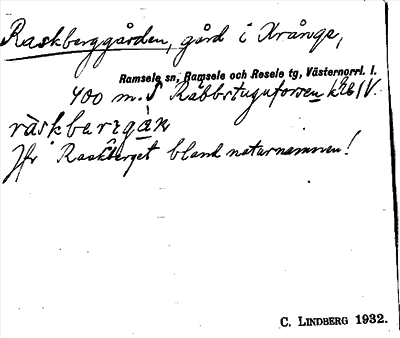 Raskberggården, gård i Krånge,
Ramsele sn, Ramsele och Resele tg, Västernorrl. l.
400 m. S Rabbstuguforsen
räskbærgán
Jfr Raskberget bland naturnamnen!
C. LINDBERG 1932.